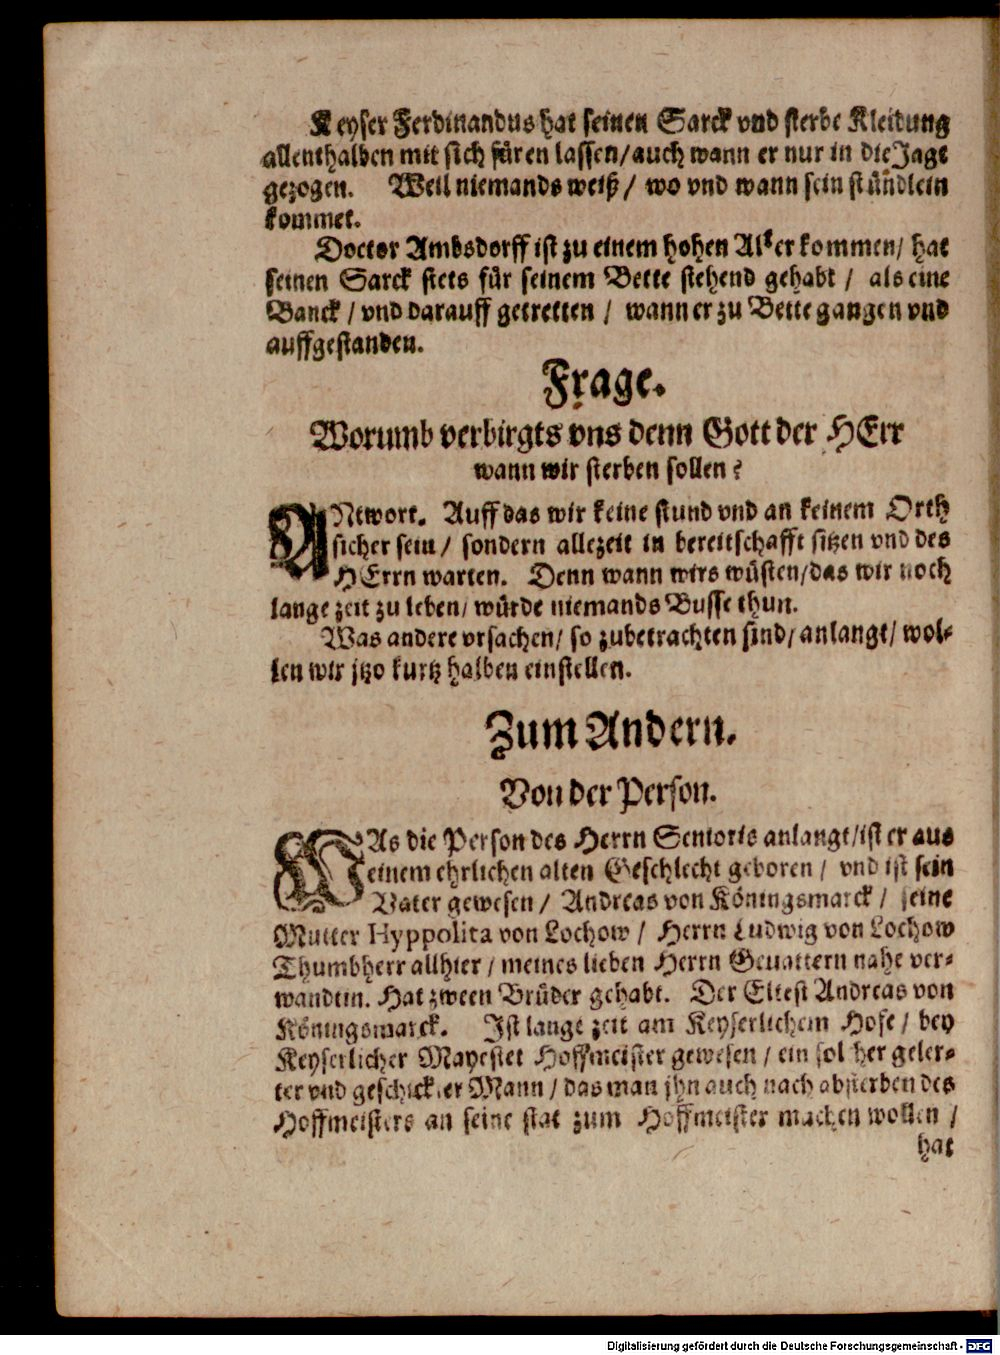 Keyser Ferdinandus hat seinen Sarck vnd sterbe Kleidung
allenthalben mit sich füren lassen/ auch wann er nur in die Jagt
gezogen. Weil niemands weiß / wo vnd wann sein stündlein
kommet.
Doctor Ambsdorff ist zu einem hohen Alter kommen/ hat
seinen Sarck stets für seinem Bette stehend gehabt / als eine
Banck / vnd darauff getretten / wann er zu Bette gangen vnd
auffgestanden.
Frage.
Worumb verbirgts vns denn Gott der HErr
wann wir sterben sollen?
ANtwort. Auff das wir keine stund vnd an keinem Orth
sicher sein / sondern allezeit in bereitschafft sitzen vnd des
HErrn warten. Denn wann wirs wüsten/ das wir noch
lange zeit zu leben/ würde niemands Busse thun.
Was andere vrsachen/ so zubetrachten sind/ anlangt/ wol-
len wir jtzo kurtz halben einstellen.
Zum Andern.
Von der Person.
WAs die Person des Herrn Senioris anlangt/ ist er aus
einem ehrlichen alten Geschlecht geboren / vnd ist sein
Vater gewesen / Andreas von Köningsmarck / seine
Mutter Hyppolita von Lochow / Herrn Ludwig von Lochow
Thumbherr allhier / meines lieben Herrn Gevattern nahe ver-
wandtin. Hat zween Brüder gehabt. Der Eltest Andreas von
Köningsmarck. Ist lange zeit am Keyserlichem Hofe / bey
Keyserlicher Mayestet Hoffmeister gewesen / ein solcher geler-
ter vnd geschickter Mann / das man jhn auch nach absterben des
Hoffmeisters an seine stat zum Hoffmeister machen wollen /
hat
Digitalisierung gefördert durch die Deutsche Forschungsgemeinschaft - DFG